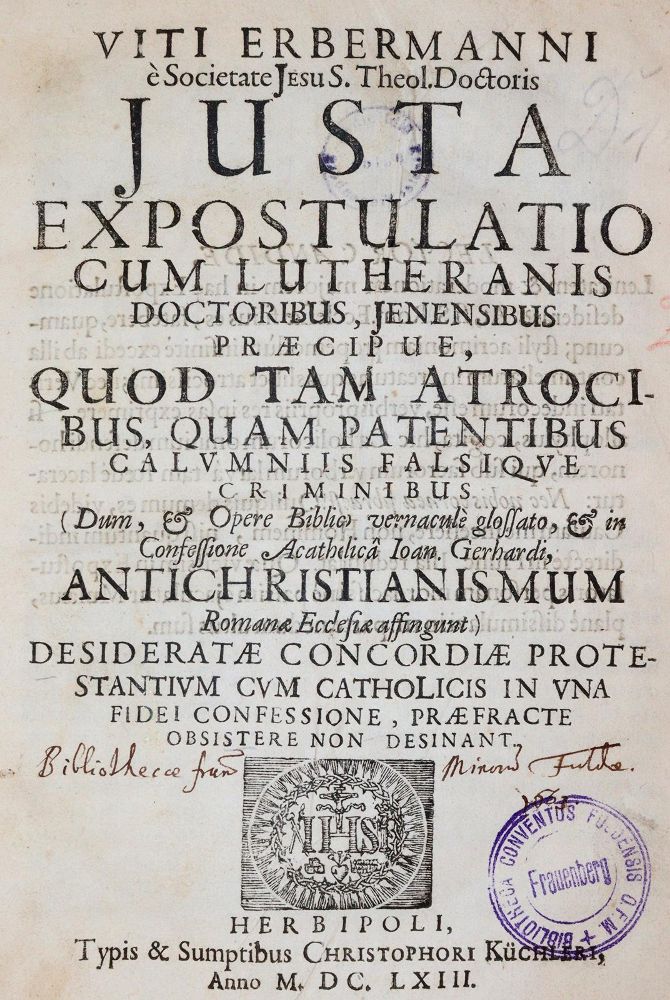 VITI ERBERMANNI
è Societate JESU S. Theol. Doctoris
JUSTA
EXPOSTULATIO
CUM LUTHERANIS
DOCTORIBUS, JENENSIBUS
PRÆCIPUE,
QUOD TAM ATROCI-
BUS, QUAM PATENTIBUS
CALVMNIIS FALSIQVE
CRIMINIBUS
(Dum, & Opere Biblico vernaculè glossato, & in
Confessione Acatholicâ Ioan. Gerhardi,
ANTICHRISTIANISMUM
Romanæ Ecclesiæ affingunt)
DESIDERATÆ CONCORDIÆ PROTE-
STANTIVM CVM CATHOLICIS IN VNA
FIDEI CONFESSIONE, PRÆFRACTE
OBSISTERE NON DESINANT.
Bibliothecæ Minorū Fuldæ.
IHS
BIBLIOTHECA CONVENTUS FULDENSIS O.F.M.
Frauenberg
HERBIPOLI,
Typis & Sumptibus CHRISTOPHORI KÜCHLERI,
Anno M. DC. LXIII.